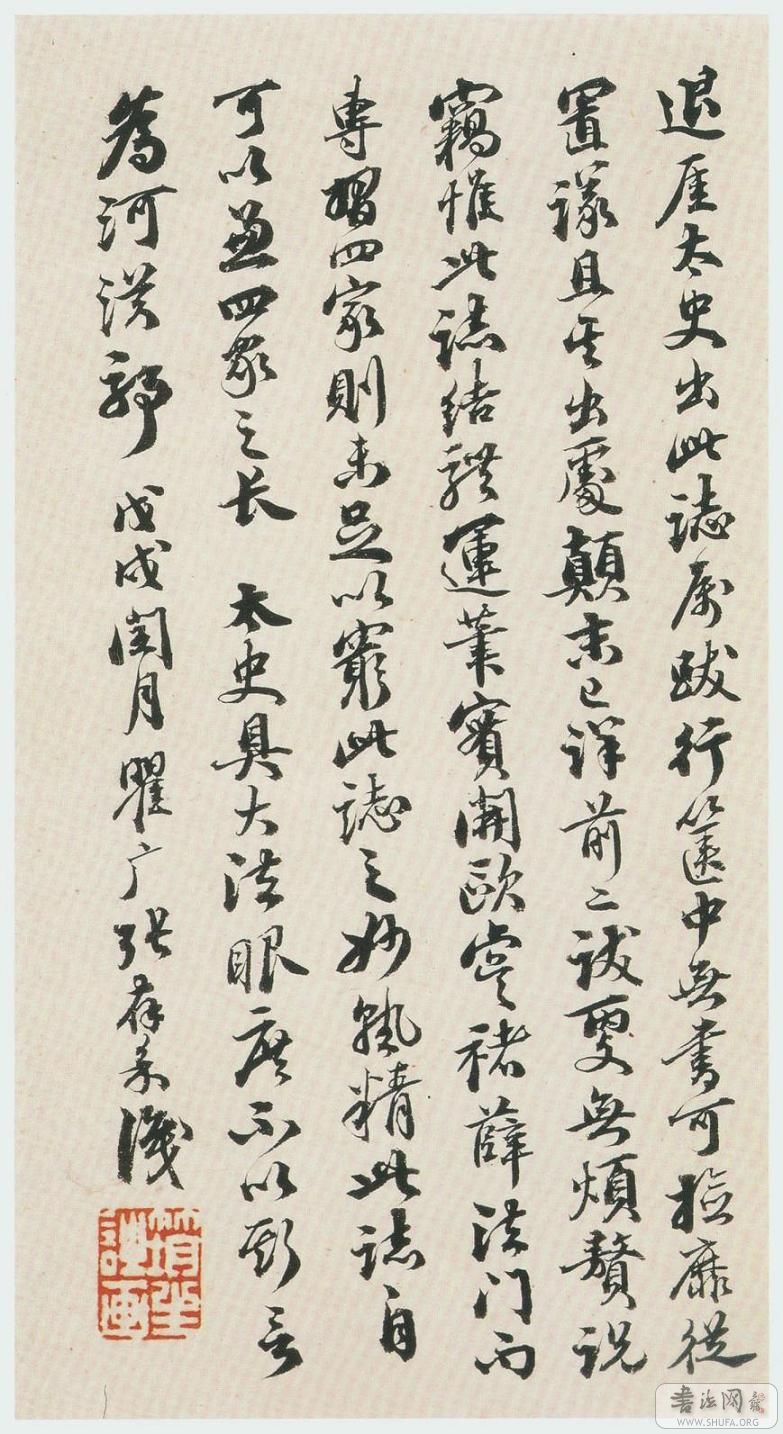 退厓太史出此誌屬跋行篋中無書可撿靡從
置議且其出處顛末已詳前二跋更無煩贅說
竊惟此誌結體運筆實開歐虞褚薛法门而
專摺四家則未足以窮此誌之妙孰精此誌自
可以兼四家之长 太史具大法眼度不以斯言
為河漢歟 戊戌閏月瞿广張識
坐讀画
書法网
WWW.SHUFA.ORG